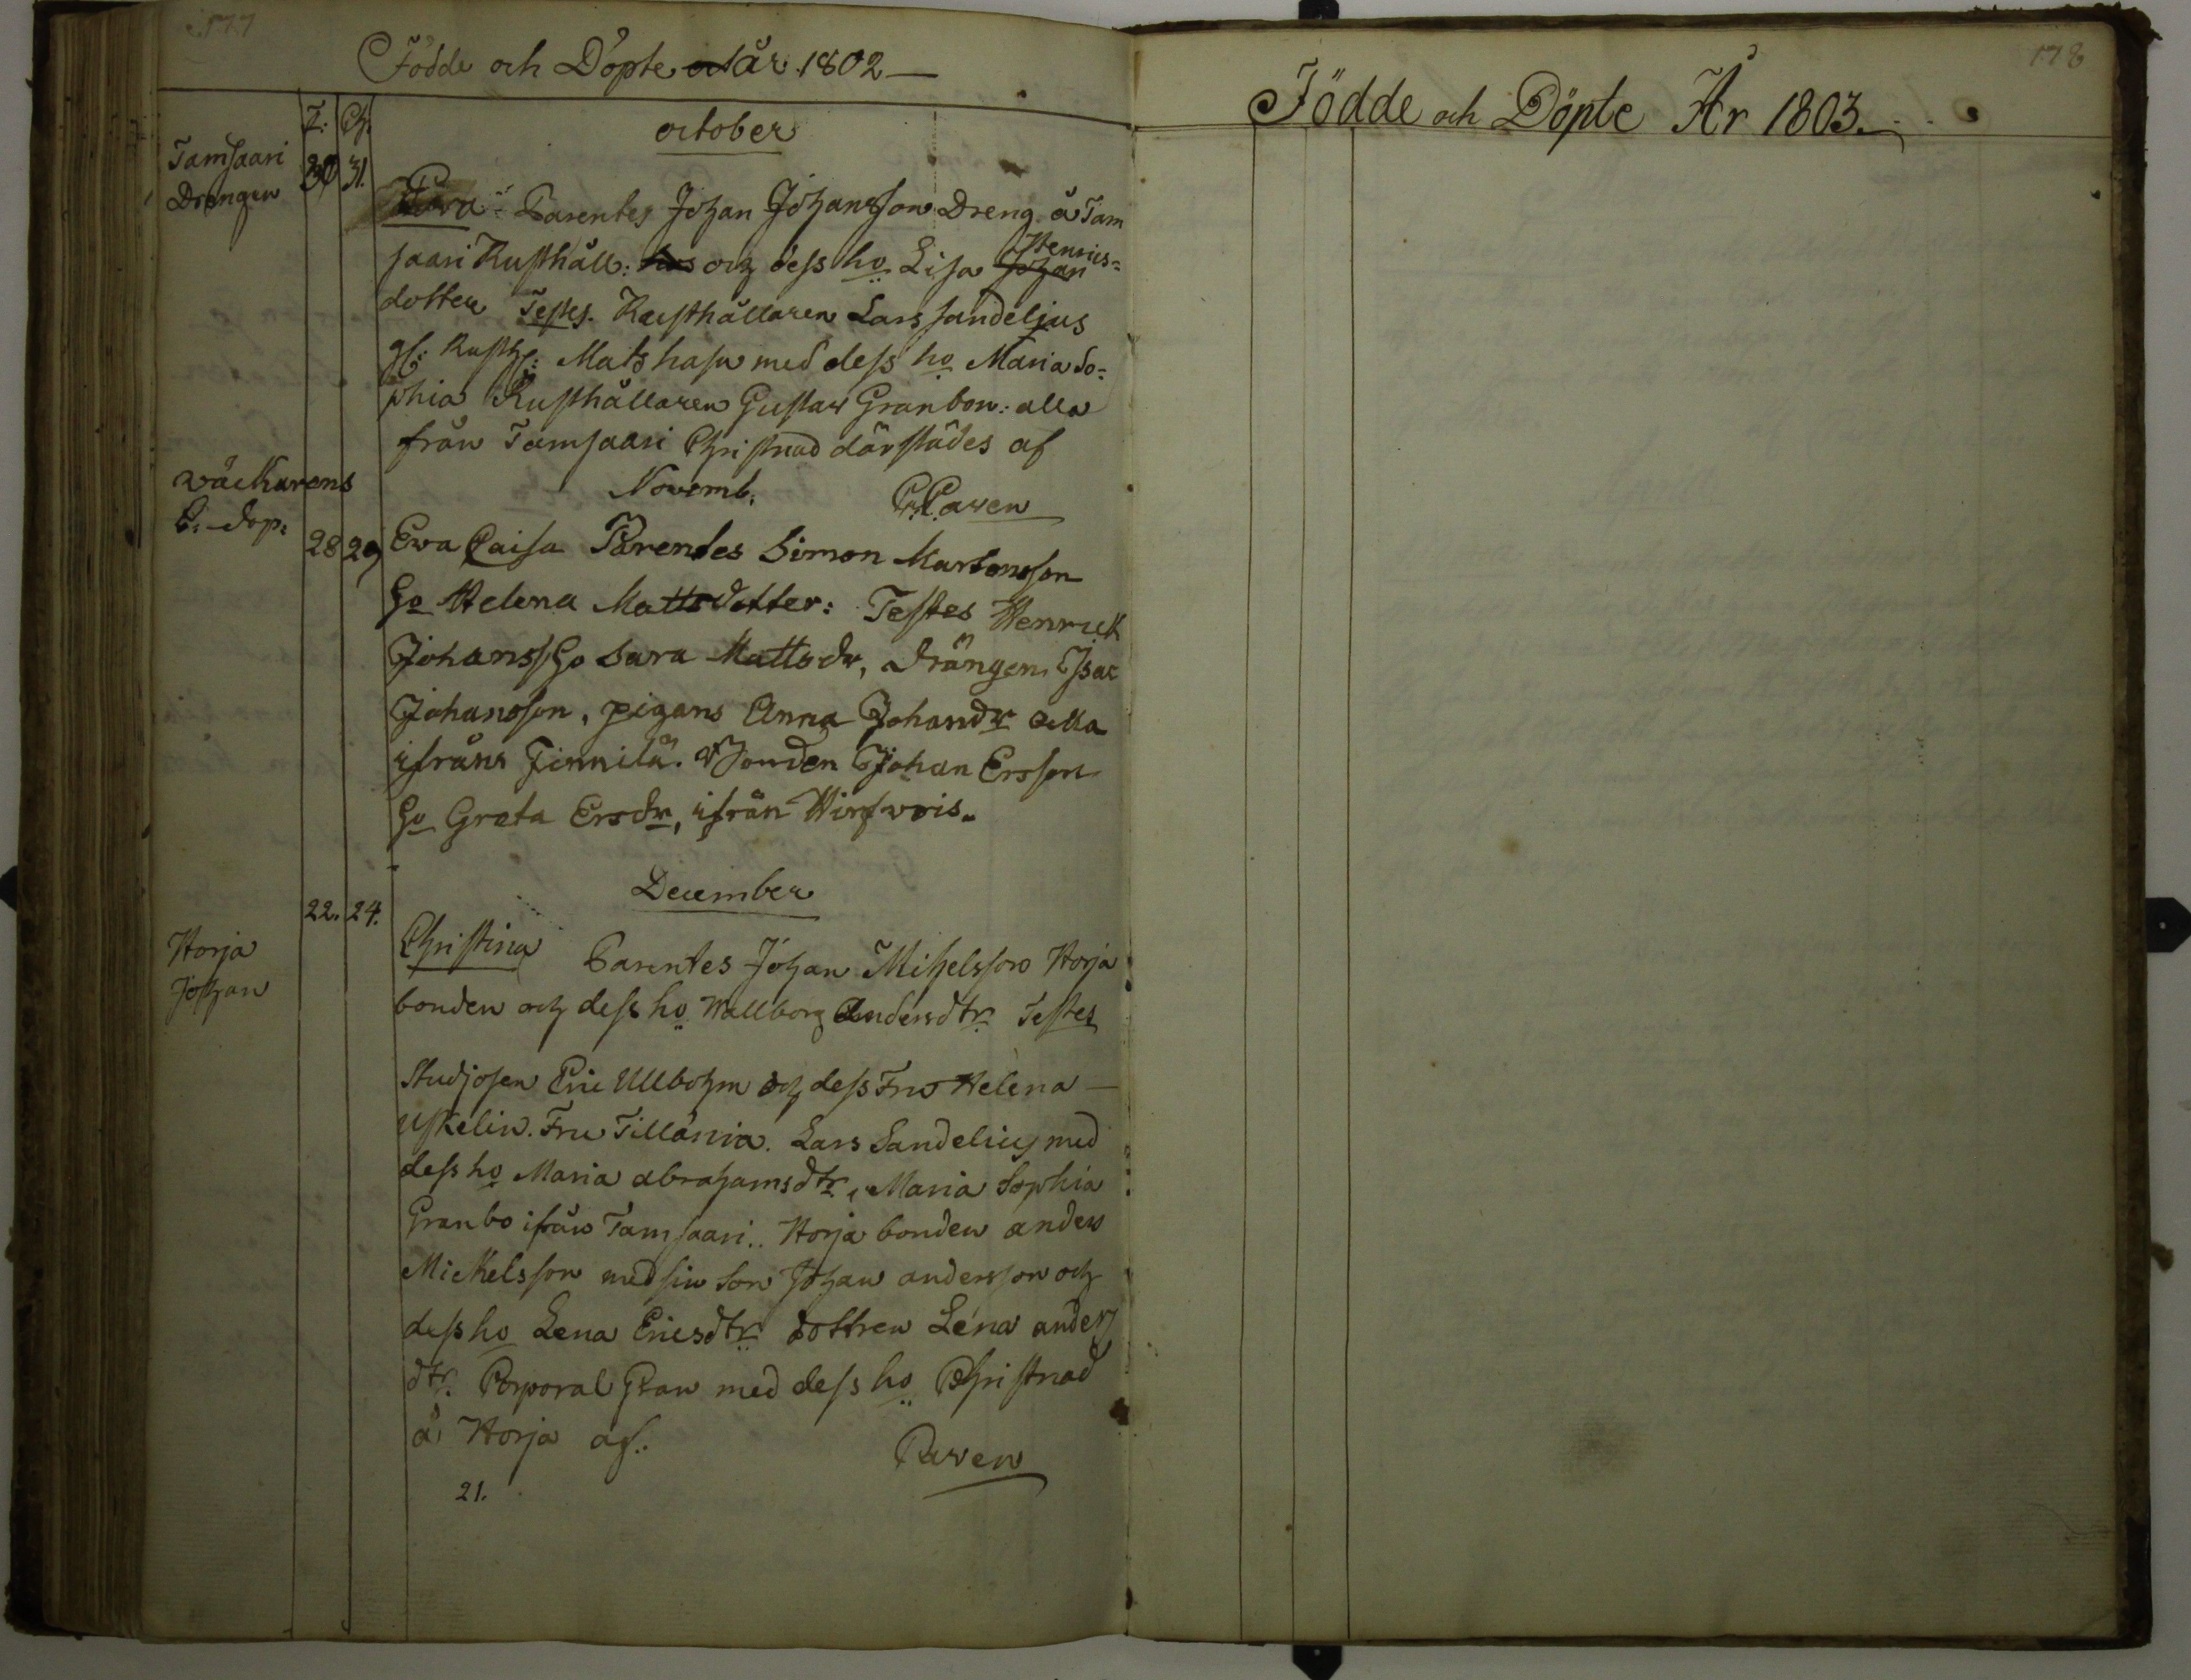 177
Födde och Döpte år 1802
F: Ch:
october
Tamsaari
Drengen
30 31.
Parentes Johan Johansson Dreng å Tam
saari Rusthåll: och dess ho Lisa Johan Henrics=
dotter Testes. Rusthållaren Lars Sandelius
gl: Rusth: Mats hasu med dess ho Maria So=
phia Rusthållaren Gustav Granbon: alla
från Tamsaari Christnad därstädes af
Novemb: Paven
wäckarens
28 29 Ewa Caisa Parentes Simon Martensson
Ho Helena Mattsdotter: Testes Henrick
Johanss Ho Sara Mattsdr, drängen Isac
Johansson, pigans Anna Johansdr alla
ifråns Finnilä. Bonden Johan Ersson
Ho Greta Ersdr, ifrån Hirfwois.
December
22. 24.
Horja
Johan
Christina Parentes Johan Mihelsson Horja
bonden och dess ho Wallborg Andersdtr Testes
Studiosen Eric Ullbohm och dess Fru Helena
Uskelin. Fru Tillänia. Lars Sandelius med
dess ho Maria abrahamsdtr, Maria Sophia
Granbo ifrån Tamsaari. Horja bonden anders
Mickelsson med sin Son Johan andersson och
dess ho Lena Ericsdtr dottren Lena anders
dtr. Corporal Gran med dess ho Christnad
å Horja af. Paven
21.
178
Födde och Döpte År 1803.